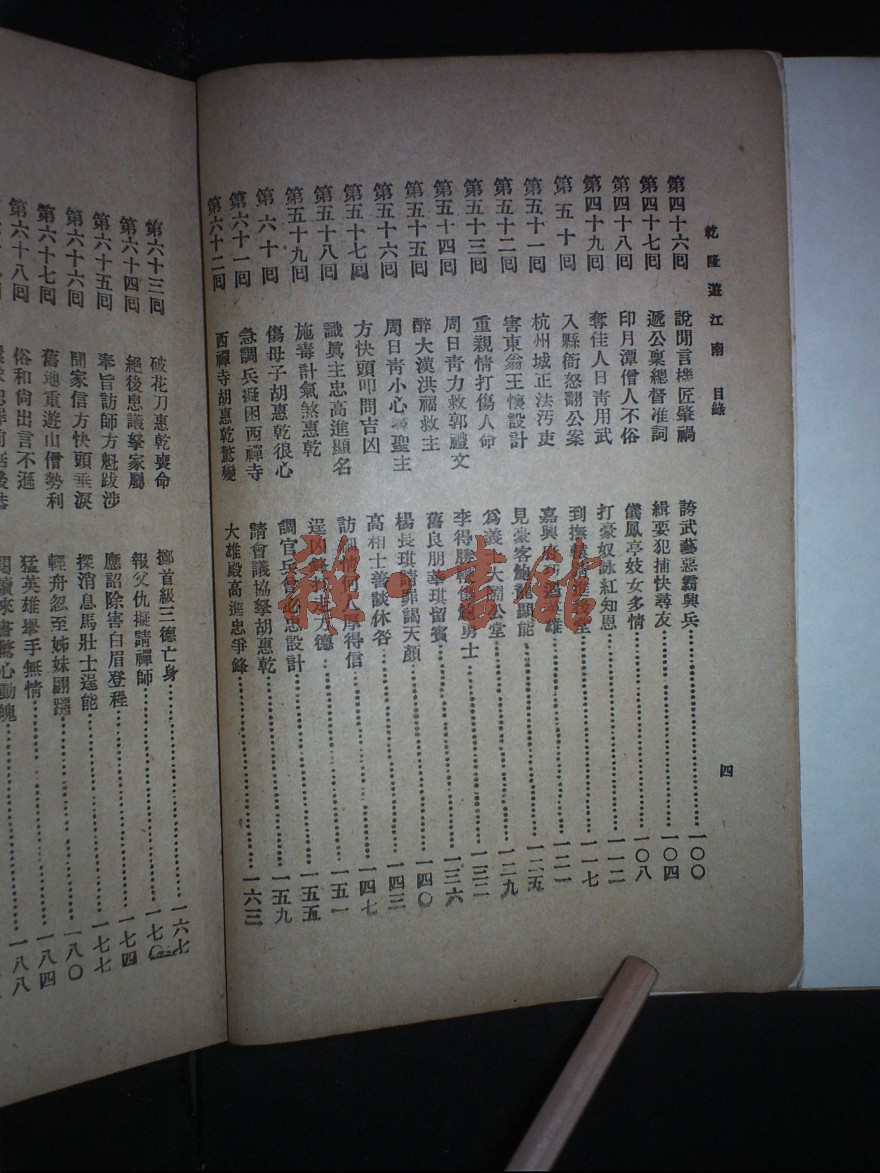 乾隆遊江南 目錄
四
第四十六回 說閒言機匠肇禍 誇武藝惡霸興兵 一〇〇
第四十七回 遞公稟總督准詞 緝要犯捕快尋友 一〇四
第四十八回 印月潭僧人不俗 儀鳳亭妓女多情 一〇八
第四十九回 奪佳人日青用武 打豪奴詠紅知恩 一一二
第五十回 入縣衙怒翻公案 到撫轅 一一七
第五十一回 杭州城正法汚吏 嘉興府 英雄 一二一
第五十二回 害東翁王懷設計 見豪客鮑龍顯能 一二五
第五十三回 重親情打傷人命 爲義 大鬧公堂 一二九
第五十四回 周日青力救郭禮文 李得勝 鮑勇士 一三二
第五十五回 醉大漢洪福救主 舊良朋華琪留賓 一三六
第五十六回 周日青小心尋聖主 楊長琪請罪謁天顏 一四〇
第五十七回 方快頭叩問吉凶 高相士善談休咎 一四三
第五十八回 識眞主忠高進顯名 訪 得信 一四七
第五十九回 施毒計氣煞惠乾 逞凶 德 一五一
第六十回 傷母子胡惠乾很心 調官兵 必忠設計 一五五
第六十一回 急調兵擬困西禪寺 請會議協拏胡惠乾 一五九
第六十二回 西禪寺胡惠乾驚變 大雄殿高進忠爭鋒 一六三
第六十三回 破花刀惠乾喪命 擲首級三德亡身 一六七
第六十四回 絕後患議拏家屬 報父仇擬請禪師 一七〇
第六十五回 奉旨訪師方魁跋涉 應詔除害白眉登程 一七四
第六十六回 開家信方快頭垂淚 探消息馬壯士逞能 一七七
第六十七回 舊地重遊山僧勢利 輕舟忽至姊妹翩躚 一八〇
第六十八回 俗和尙出言不遜 猛英雄舉手無情 一八四
閱讀來書驚心動魄 一八八